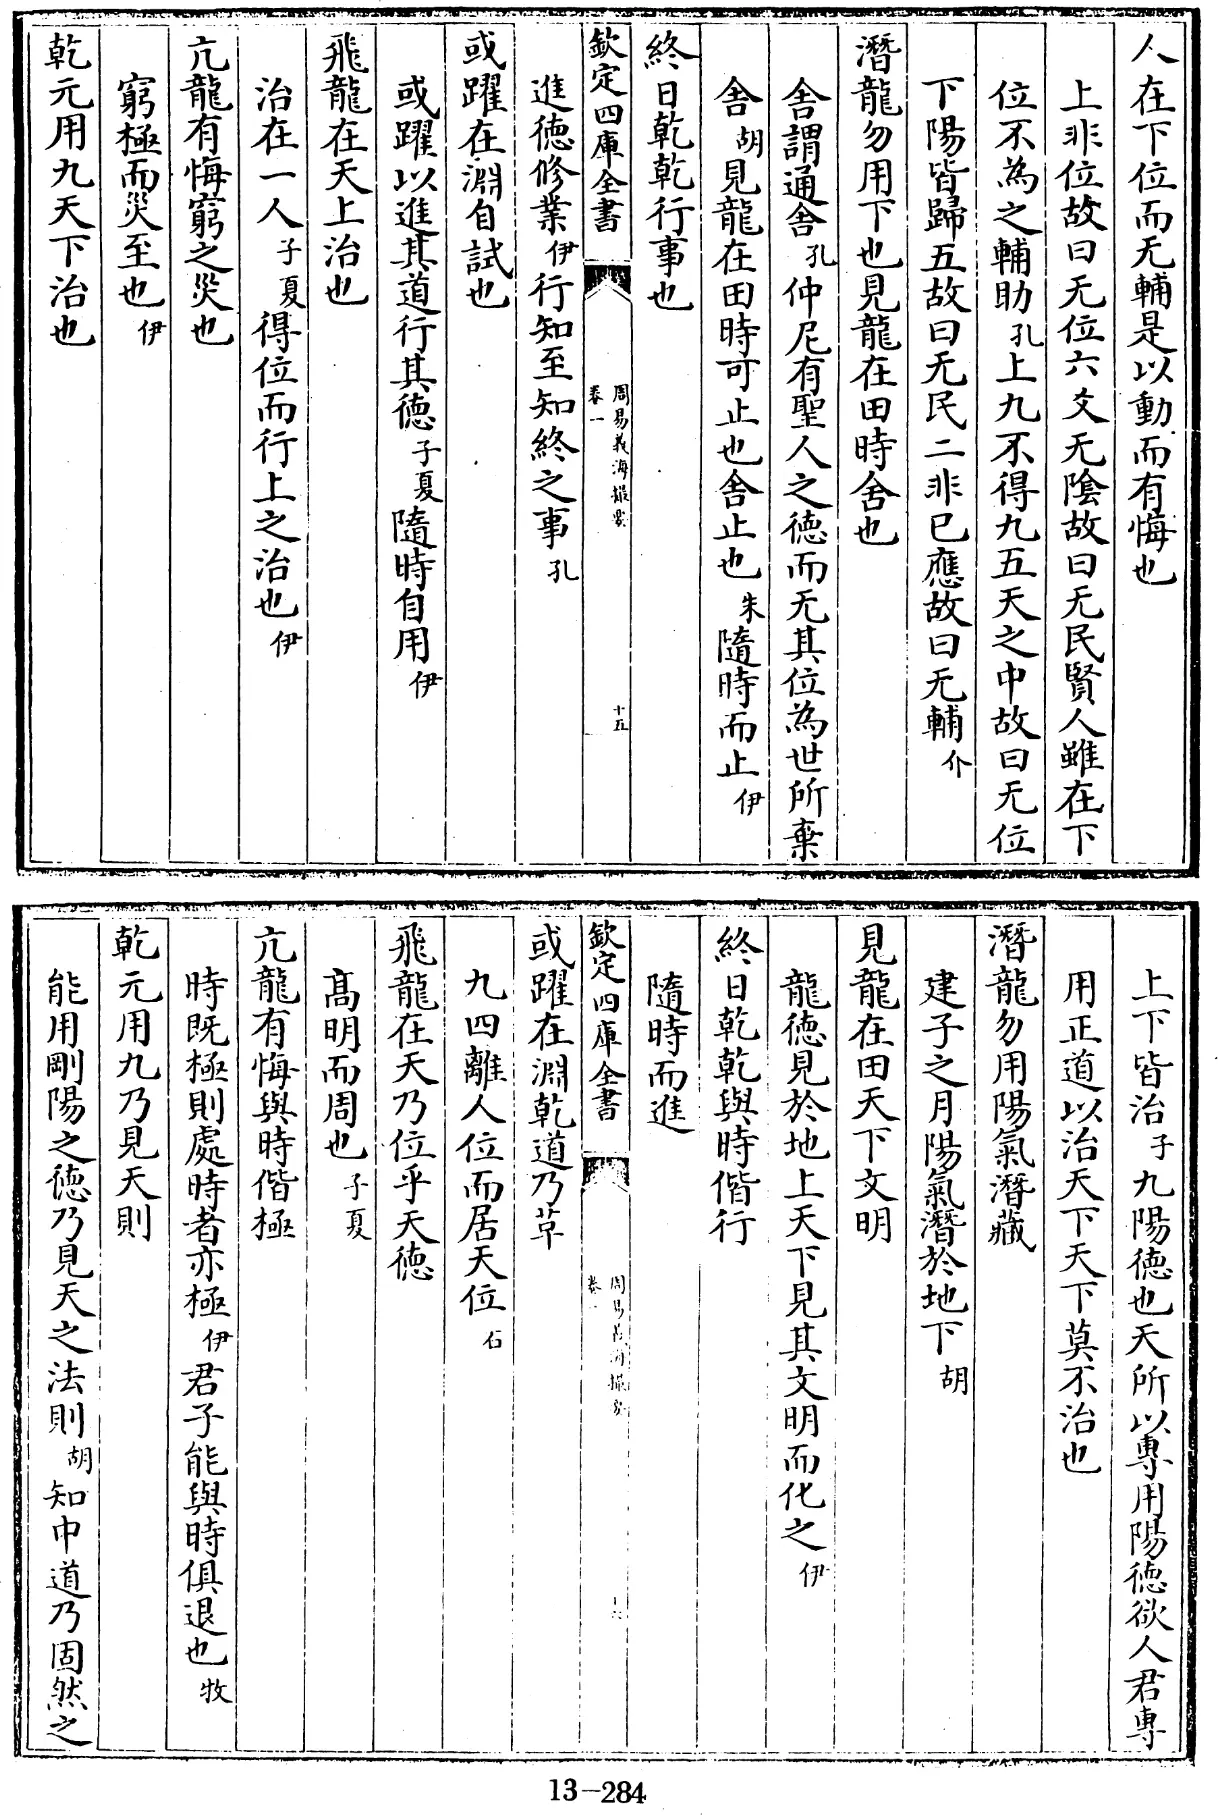 人在下位而无輔是以動而有悔也
上非位故曰无位六爻无陰故曰无民賢人雖在下
位不為之輔助孔上九不得九五天之中故曰无位
下陽皆歸五故曰无民二非已應故曰无輔介
潛龍勿用下也見龍在田時舍也
舍謂通舍孔仲尼有聖人之徳而无其位為世所棄
舍胡見龍在田時可止也舍止也朱隨時而止伊
終日乾乾行事也
欽定四庫全書
周易義海撮要
卷一
十五
進徳修業伊行知至知終之事孔
或躍在淵自試也
或躍以進其道行其徳子夏隨時自用伊
飛龍在天上治也
治在一人子夏得位而行上之治也伊
亢龍有悔窮之災也
窮極而災至也伊
乾元用九天下治也
上下皆治子九陽徳也天所以專用陽徳欲人君專
用正道以治天下天下莫不治也
潛龍勿用陽氣潛藏
建子之月陽氣潛於地下胡
見龍在田天下文明
龍徳見於地上天下見其文明而化之伊
終日乾乾與時偕行
隨時而進
欽定四庫全書
周易義海撮要
卷一
十六
或躍在淵乾道乃革
九四離人位而居天位石
飛龍在天乃位乎天徳
髙明而周也子夏
亢龍有悔與時偕極
時既極則處時者亦極伊君子能與時俱退也牧
乾元用九乃見天則
能用剛陽之徳乃見天之法則胡知中道乃固然之
13-284